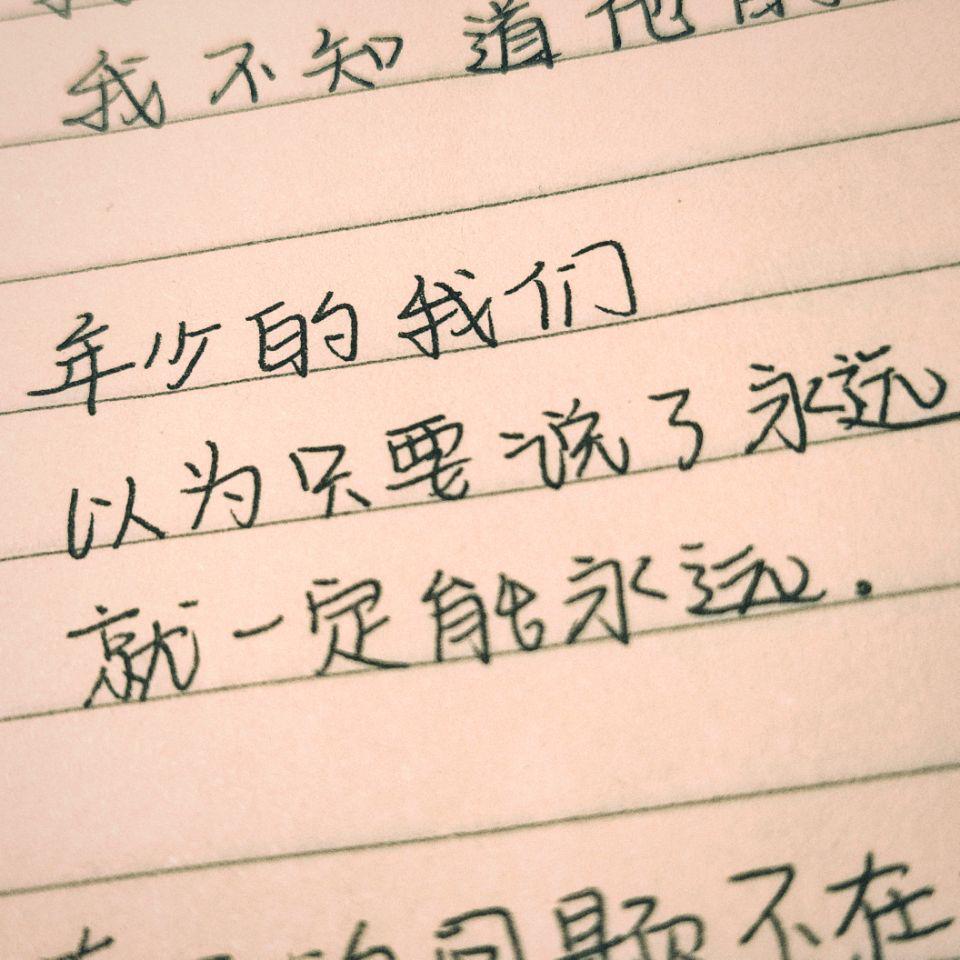 我不知道他的
年少的我们
以为只要说了永远
就一定能永远.
的问题不在